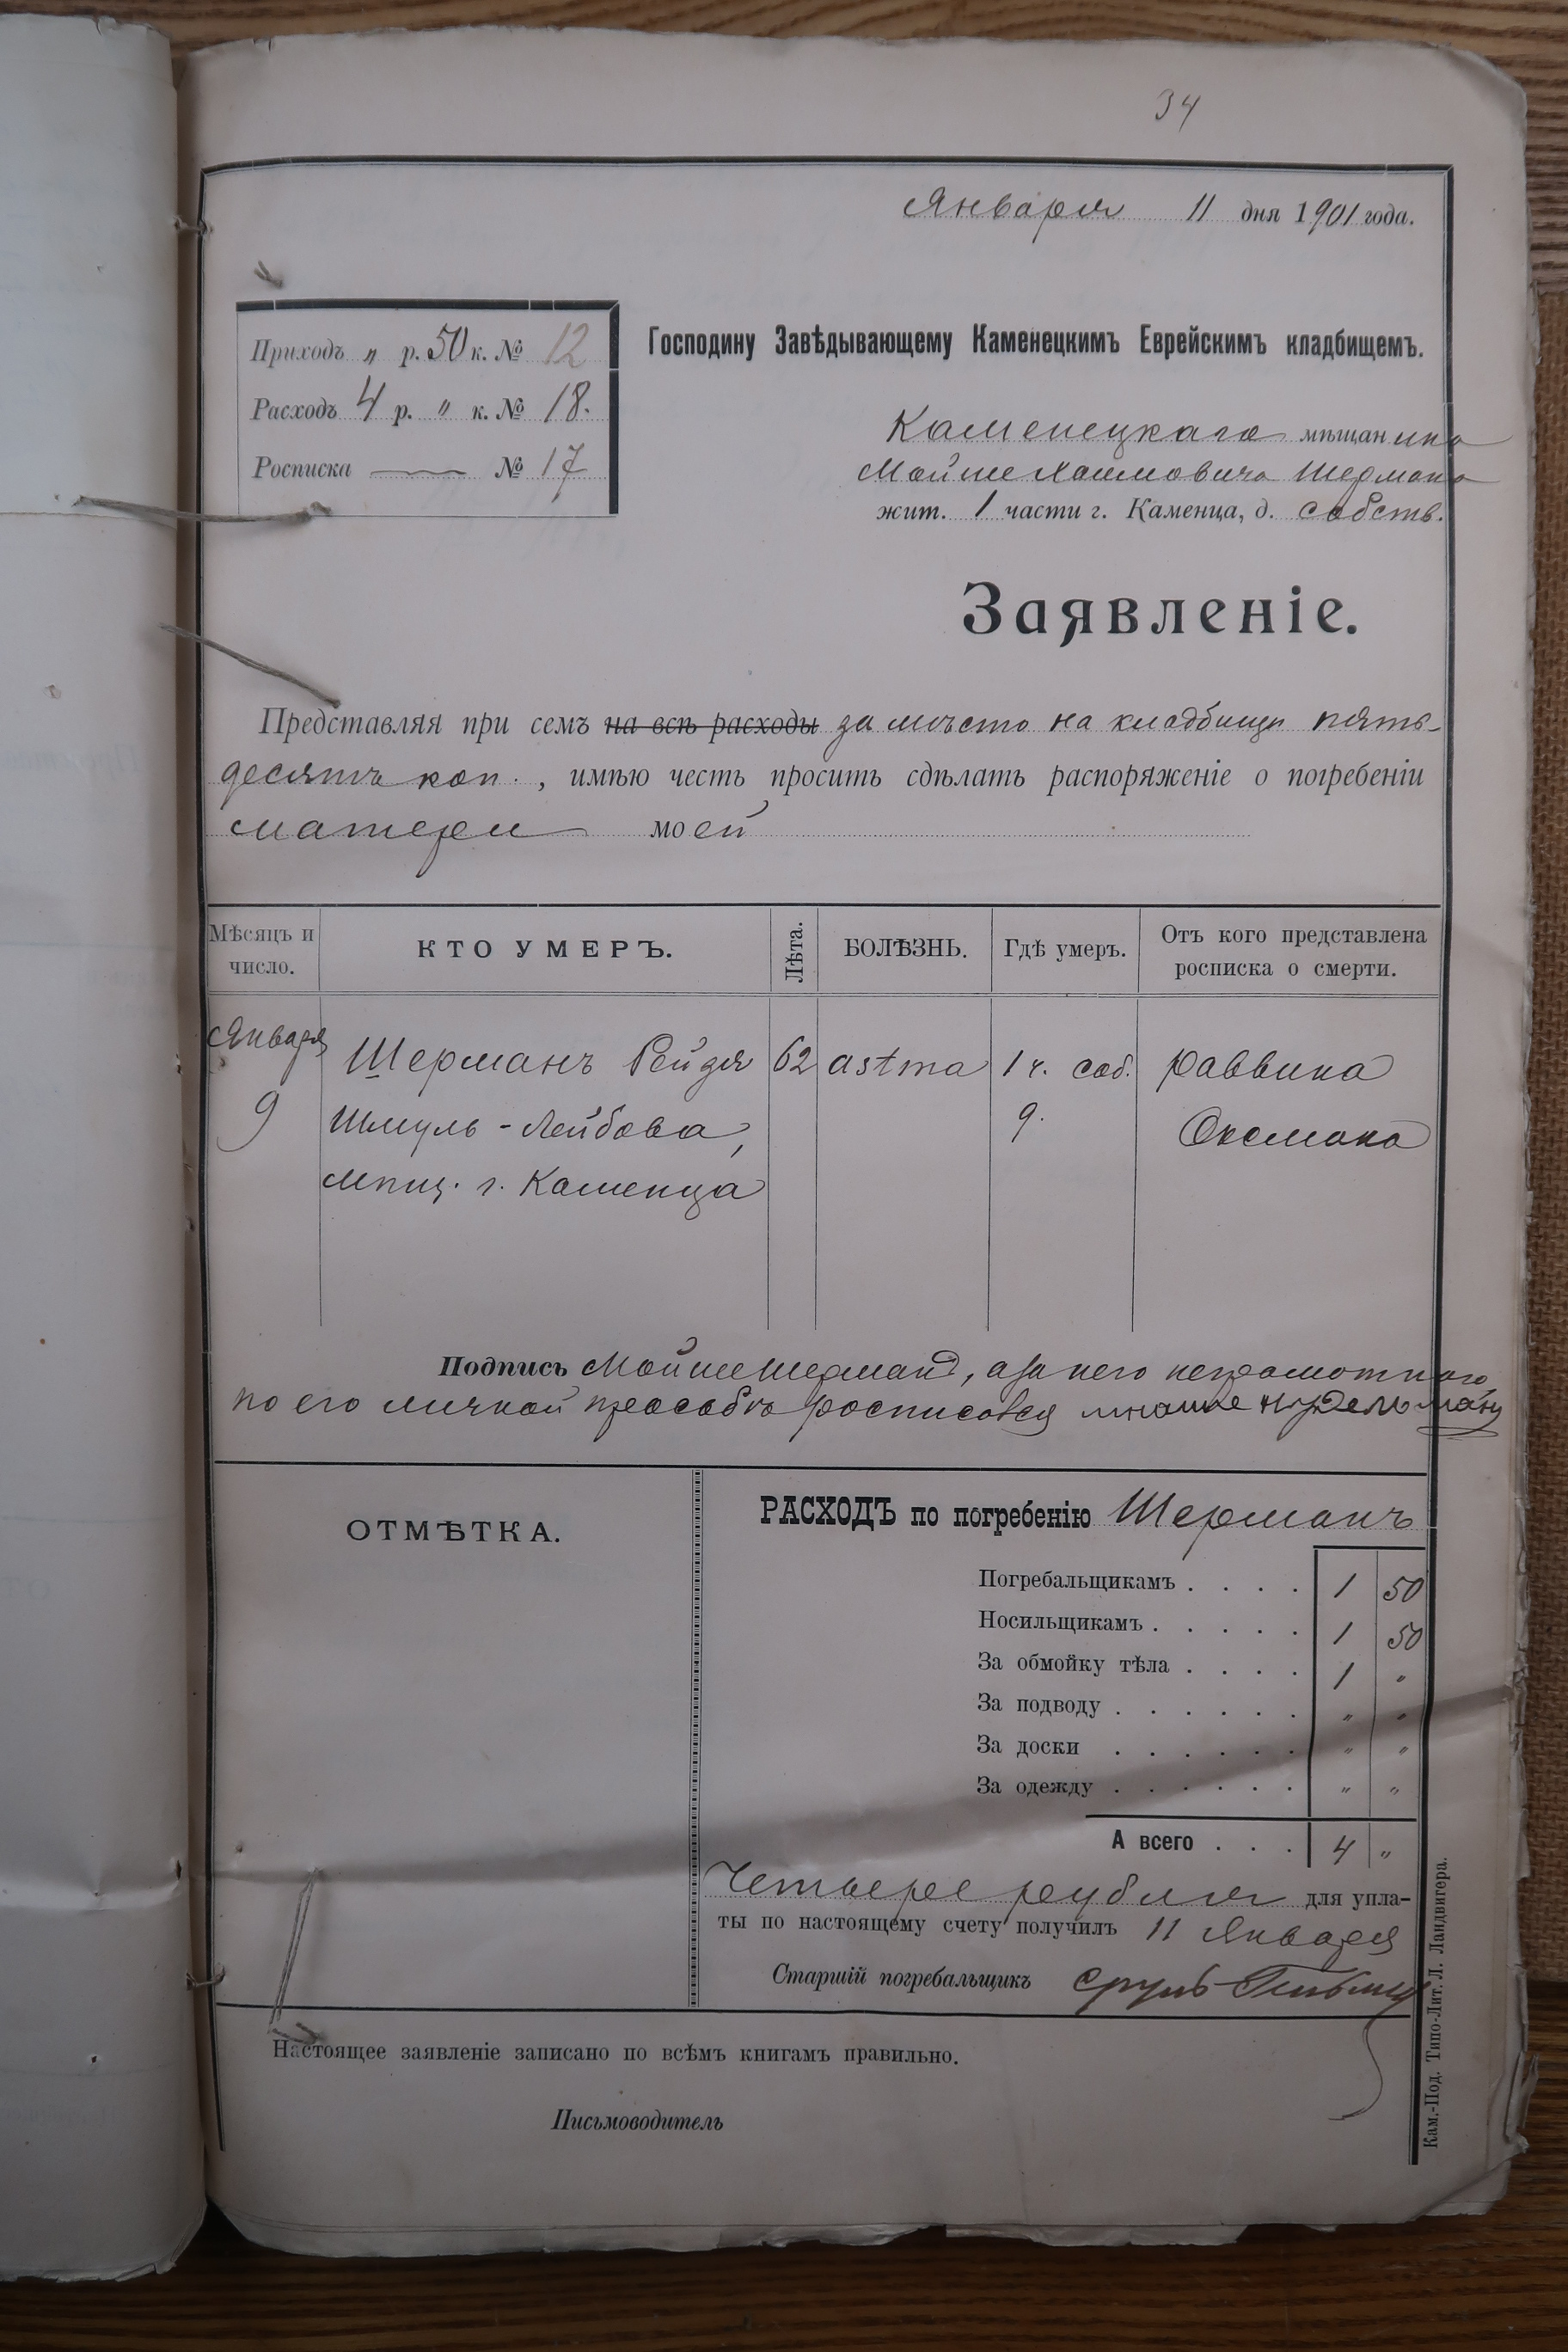 34
Января 11 дня 1901 года.
Приходъ „ р. 50 к. № 12
Расходъ 4 р. „ к. № 18.
Росписка — № 17
Господину Завѣдывающему Каменецкимъ Еврейскимъ кладбищемъ.
Каменецкаго мѣщанина
Мойше Хаимовича Шермана
жит. 1 части г. Каменца, д. собств.
Заявленіе.
Представляя при семъ на всѣ расходы за мѣсто на кладбищѣ пять-
десятъ коп. , имѣю честь просить сдѣлать распоряженіе о погребеніи
матери моей
Мѣсяцъ и число.
КТО УМЕРЪ.
Лѣта.
БОЛѢЗНЬ.
Гдѣ умеръ.
Отъ кого представлена росписка о смерти.
Января 9
Шерманъ Рейдя
Шмуль-Лейбова,
мѣщ. г. Каменца
62
astma
1 ч. соб.
Раввина
Оксмана
Подпись Мойше Шерманъ, а за него неграмотного
по его личной прособѣ росписовся
ОТМѢТКА.
РАСХОДЪ по погребенію Шерманъ
Погребальщикамъ . . . . 1 50
Носильщикамъ . . . . . 1 50
За обмойку тѣла . . . . 1 „
За подводу . . . . . . „ „
За доски . . . . . . „ „
За одежду . . . . . . „ „
А всего . . . 4 „
Четыре рубля для упла-
ты по настоящему счету получилъ 11 Января
Старшій погребальщикъ Сруль
Настоящее заявленіе записано по всѣмъ книгамъ правильно.
Письмоводитель
Кам.-Под. Типо-Лит. Л. Ландвигера.